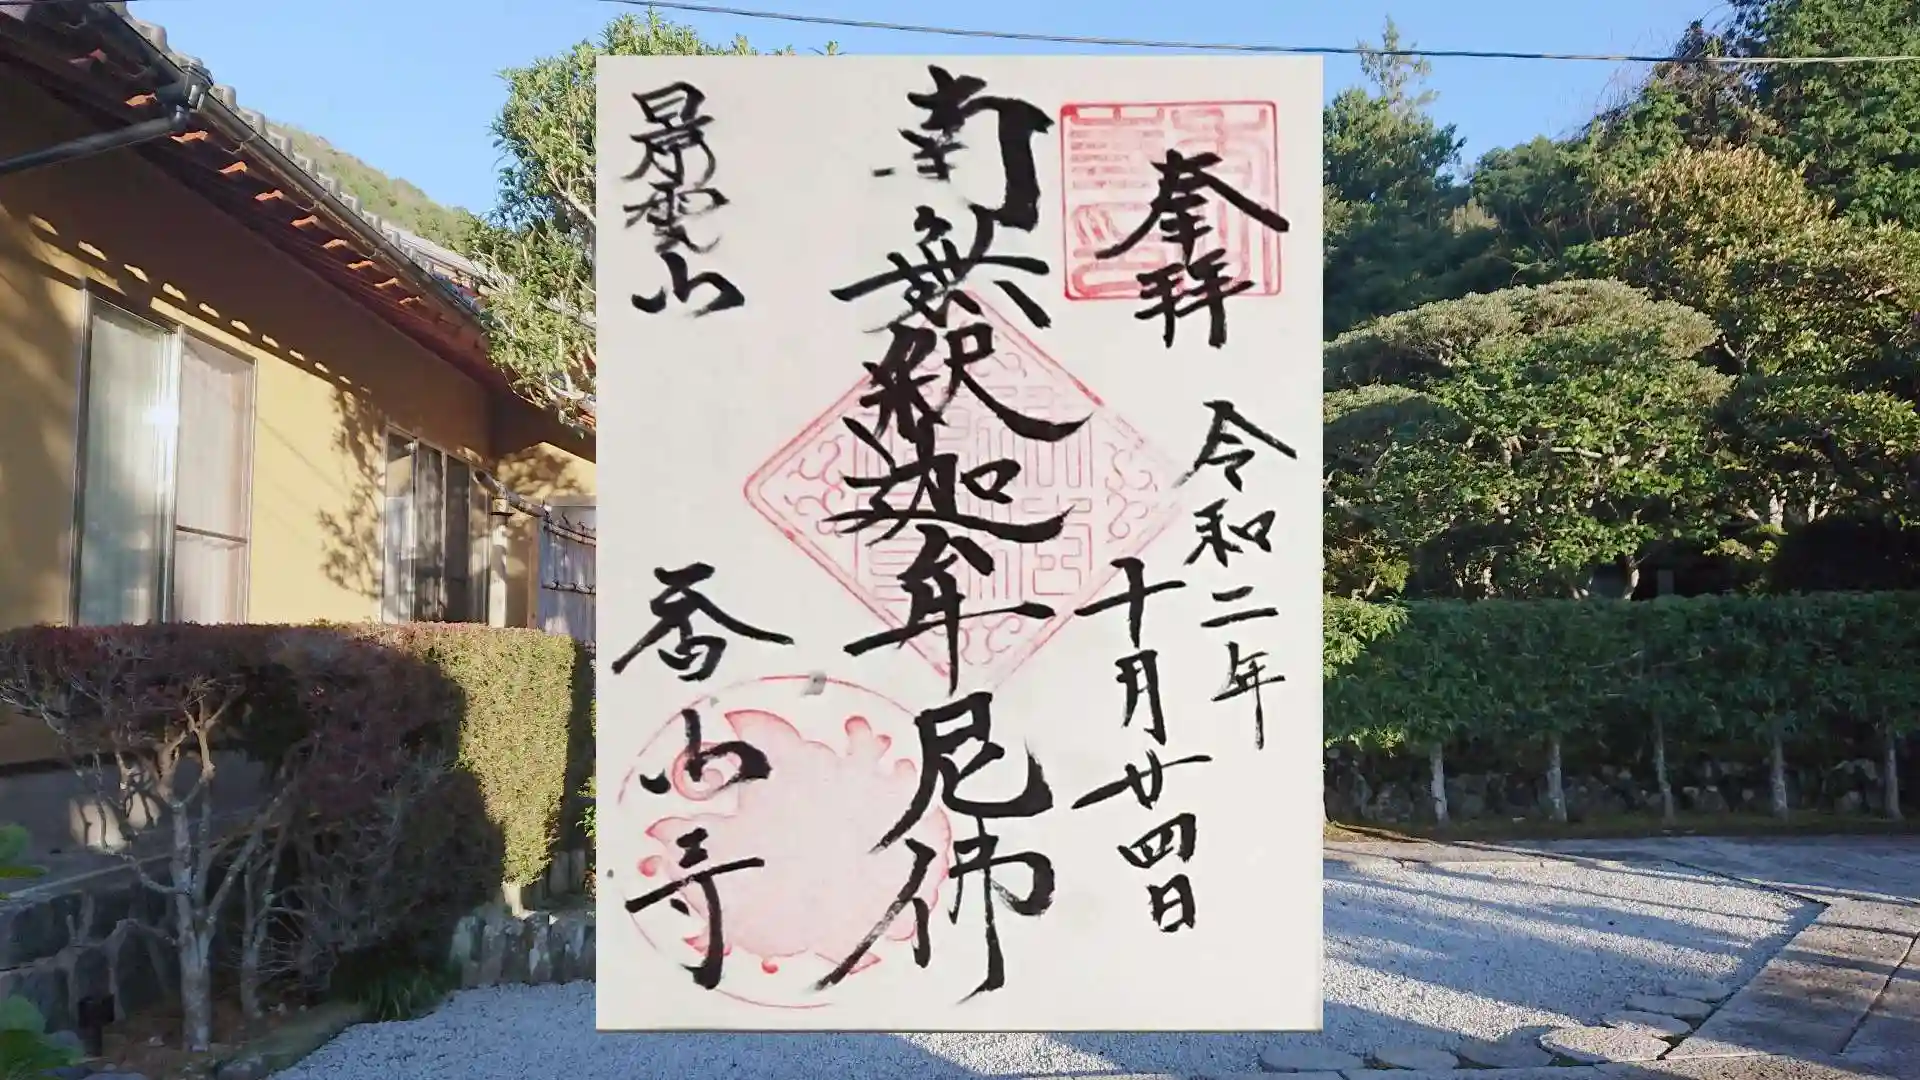 奉拝
令和二年
十月廿四日
南無釈迦牟尼佛
景雲山
香山寺